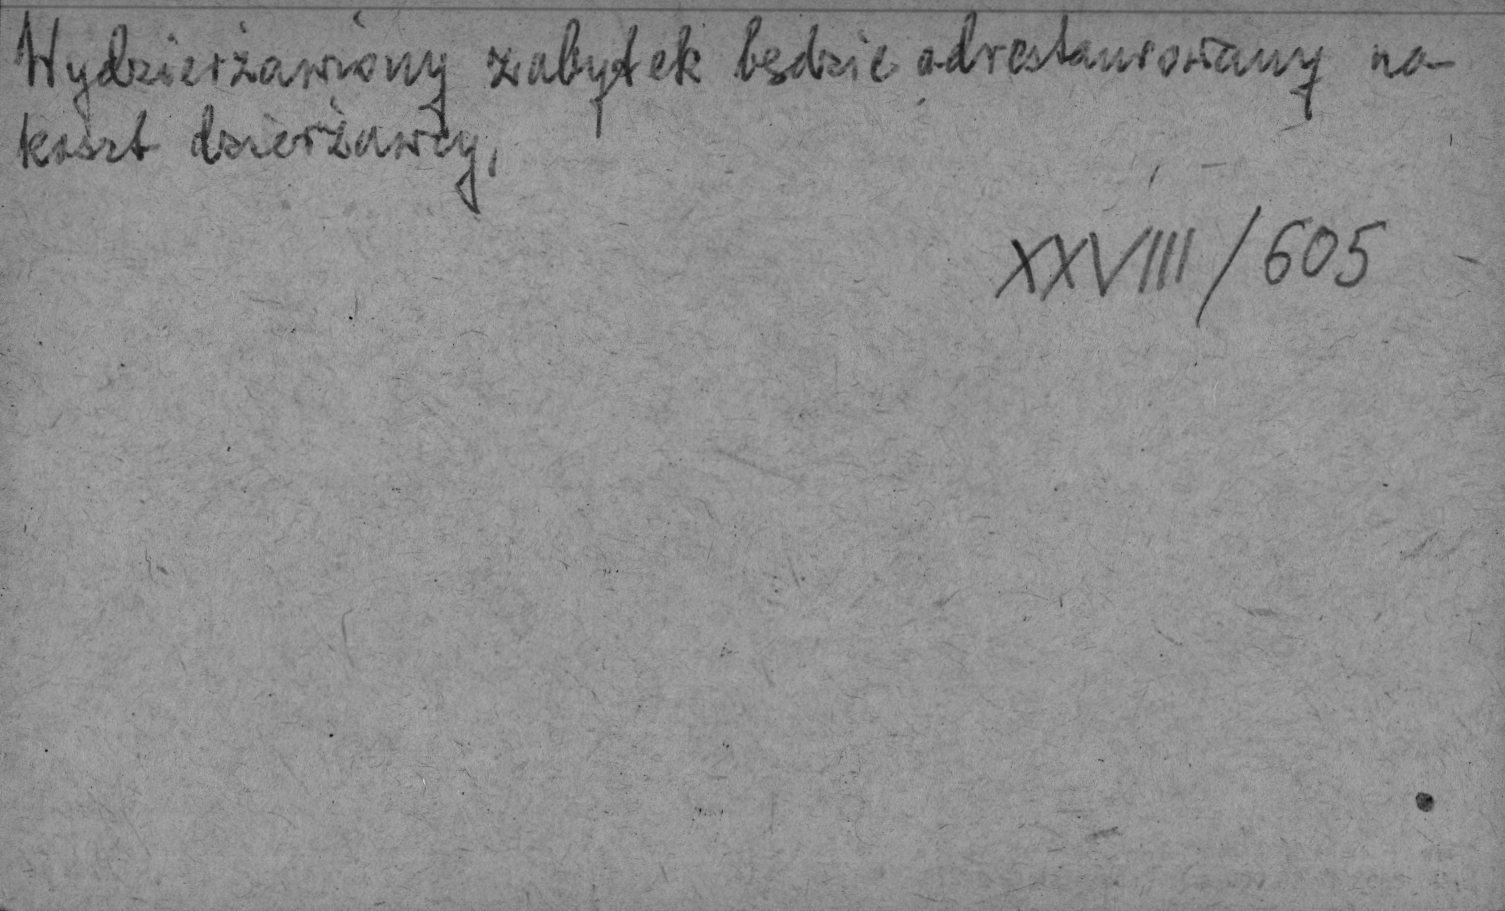 Wydzierżawiony zabytek będzie odrestaurowany na
koszt dzierżawcy,
XXVIII/605